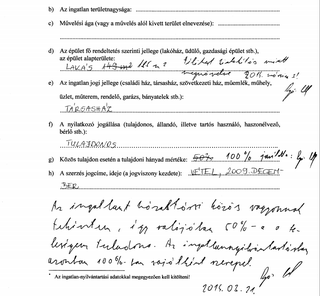 b) Az ingatlan területnagysága:
c) Művelési ága (vagy a művelés alól kivett terület elnevezése):
d) Az épület fő rendeltetés szerinti jellege (lakóház, üdülő, gazdasági épület stb.),
az épület alapterülete:
LAKÁS
e) Az ingatlan jogi jellege (családi ház, társasház, szövetkezeti ház, műemlék, műhely,
üzlet, műterem, rendelő, garázs, bányatelek stb.):
TÁRSASHÁZ
f) A nyilatkozó jogállása (tulajdonos, állandó, illetve tartós használó, haszonélvező,
bérlő stb.):
TULAJDONOS
g) Közös tulajdon esetén a tulajdoni hányad mértéke: 50% 100%
h) A szerzés jogcíme, ideje (a jogviszony kezdete): VÉTEL, 2009. DECEM-
BER
Az ingatlant házastársi közös vagyonnak
tekintem, így valójában 50%-a a
tulajdona. Az ingatlannyilvántartásban
azonban 100%-ban sajátként szerepel.
* Az ingatlan-nyilvántartási adatokkal megegyezően kell kitölteni!